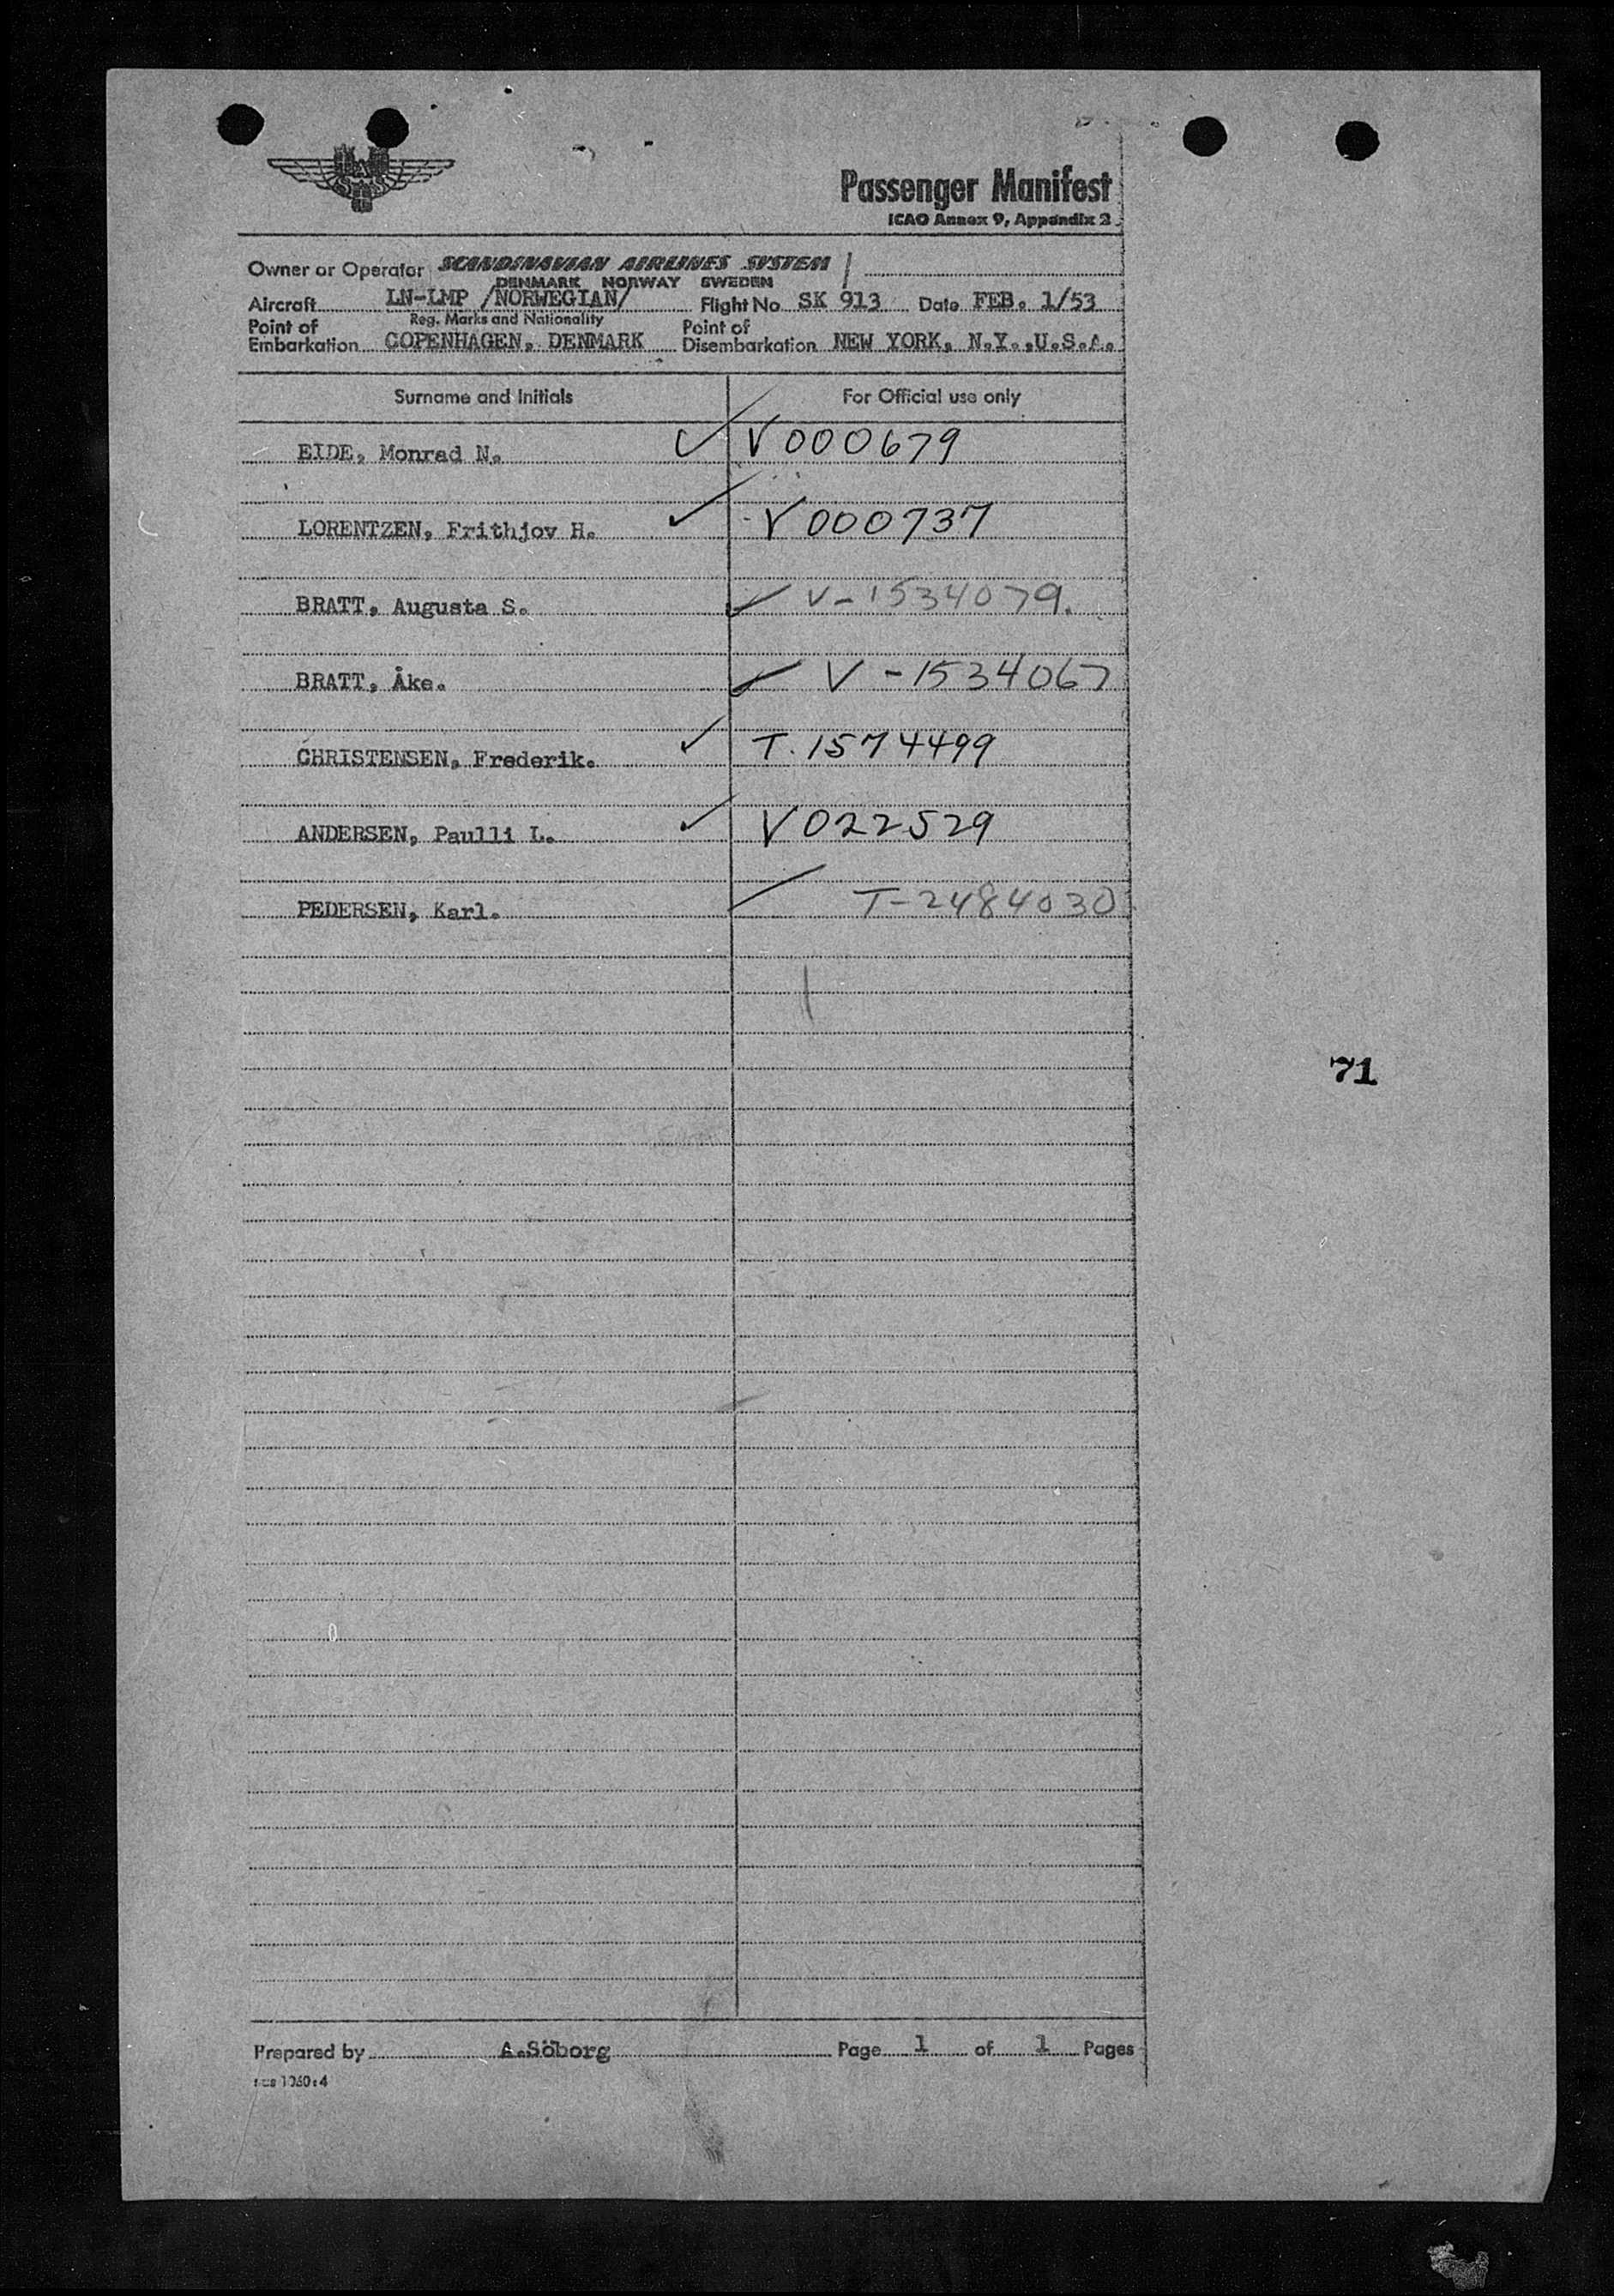 SAS
Passenger Manifest
ICAO Annex 9, Appendix 2
Owner or Operator SCANDINAVIAN AIRLINES SYSTEM
DENMARK NORWAY SWEDEN
Aircraft LN-LMP /NORWEGIAN/ Flight No SK 913 Date FEB. 1/53
Reg. Marks and Nationality
Point of Embarkation COPENHAGEN, DENMARK Point of Disembarkation NEW YORK, N.Y.,U.S.A.
Surname and Initials For Official use only
EIDE, Monrad N. V000679
LORENTZEN, Frithjov H. V000737
BRATT, Augusta S. V-1534079.
BRATT, Åke. V-1534067
CHRISTENSEN, Frederik. T.1574499
ANDERSEN, Paulli L. V022529
PEDERSEN, Karl. T-2484030
71
Prepared by A.Söborg Page 1 of 1 Pages
1060:4